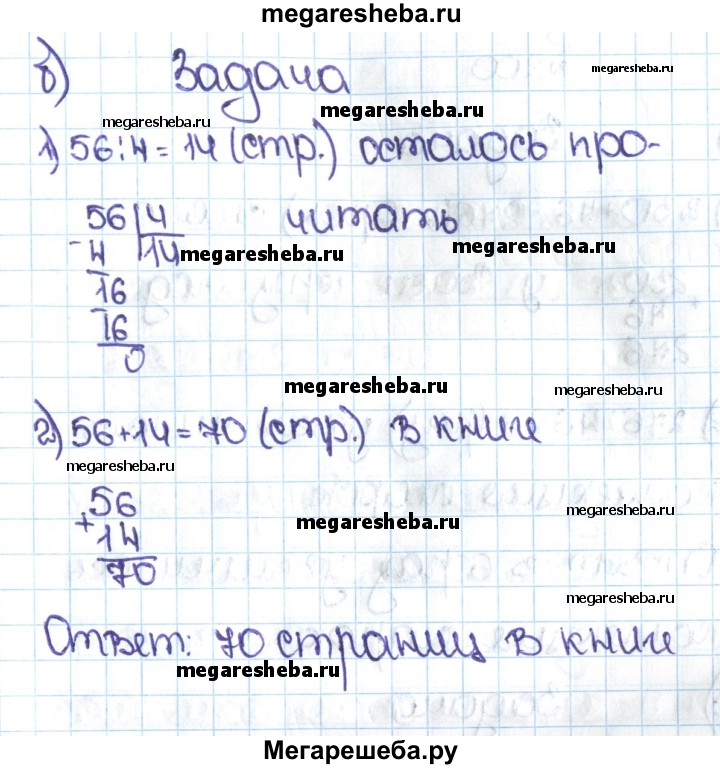 megaresheba.ru
б) Задача
megaresheba.ru
megaresheba.ru
megaresheba.ru
1) 56:4=14 (стр.) осталось про-
56 4 читать
- 4 14 megaresheba.ru megaresheba.ru
16
16
0
megaresheba.ru
megaresheba.ru
2) 56+14=70 (стр.) в книге
megaresheba.ru
56
+ 14
70
megaresheba.ru
megaresheba.ru
megaresheba.ru
Ответ: 70 страниц в книге
megaresheba.ru
Мегарешеба.ру